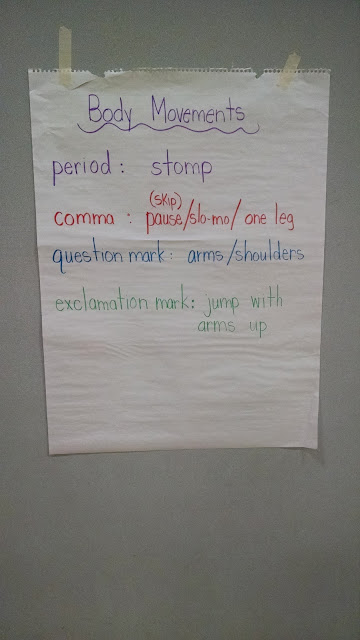 Body Movements
period: stomp
(skip)
comma: pause/slo-mo/one leg
question mark: arms/shoulders
exclamation mark: jump with
arms up